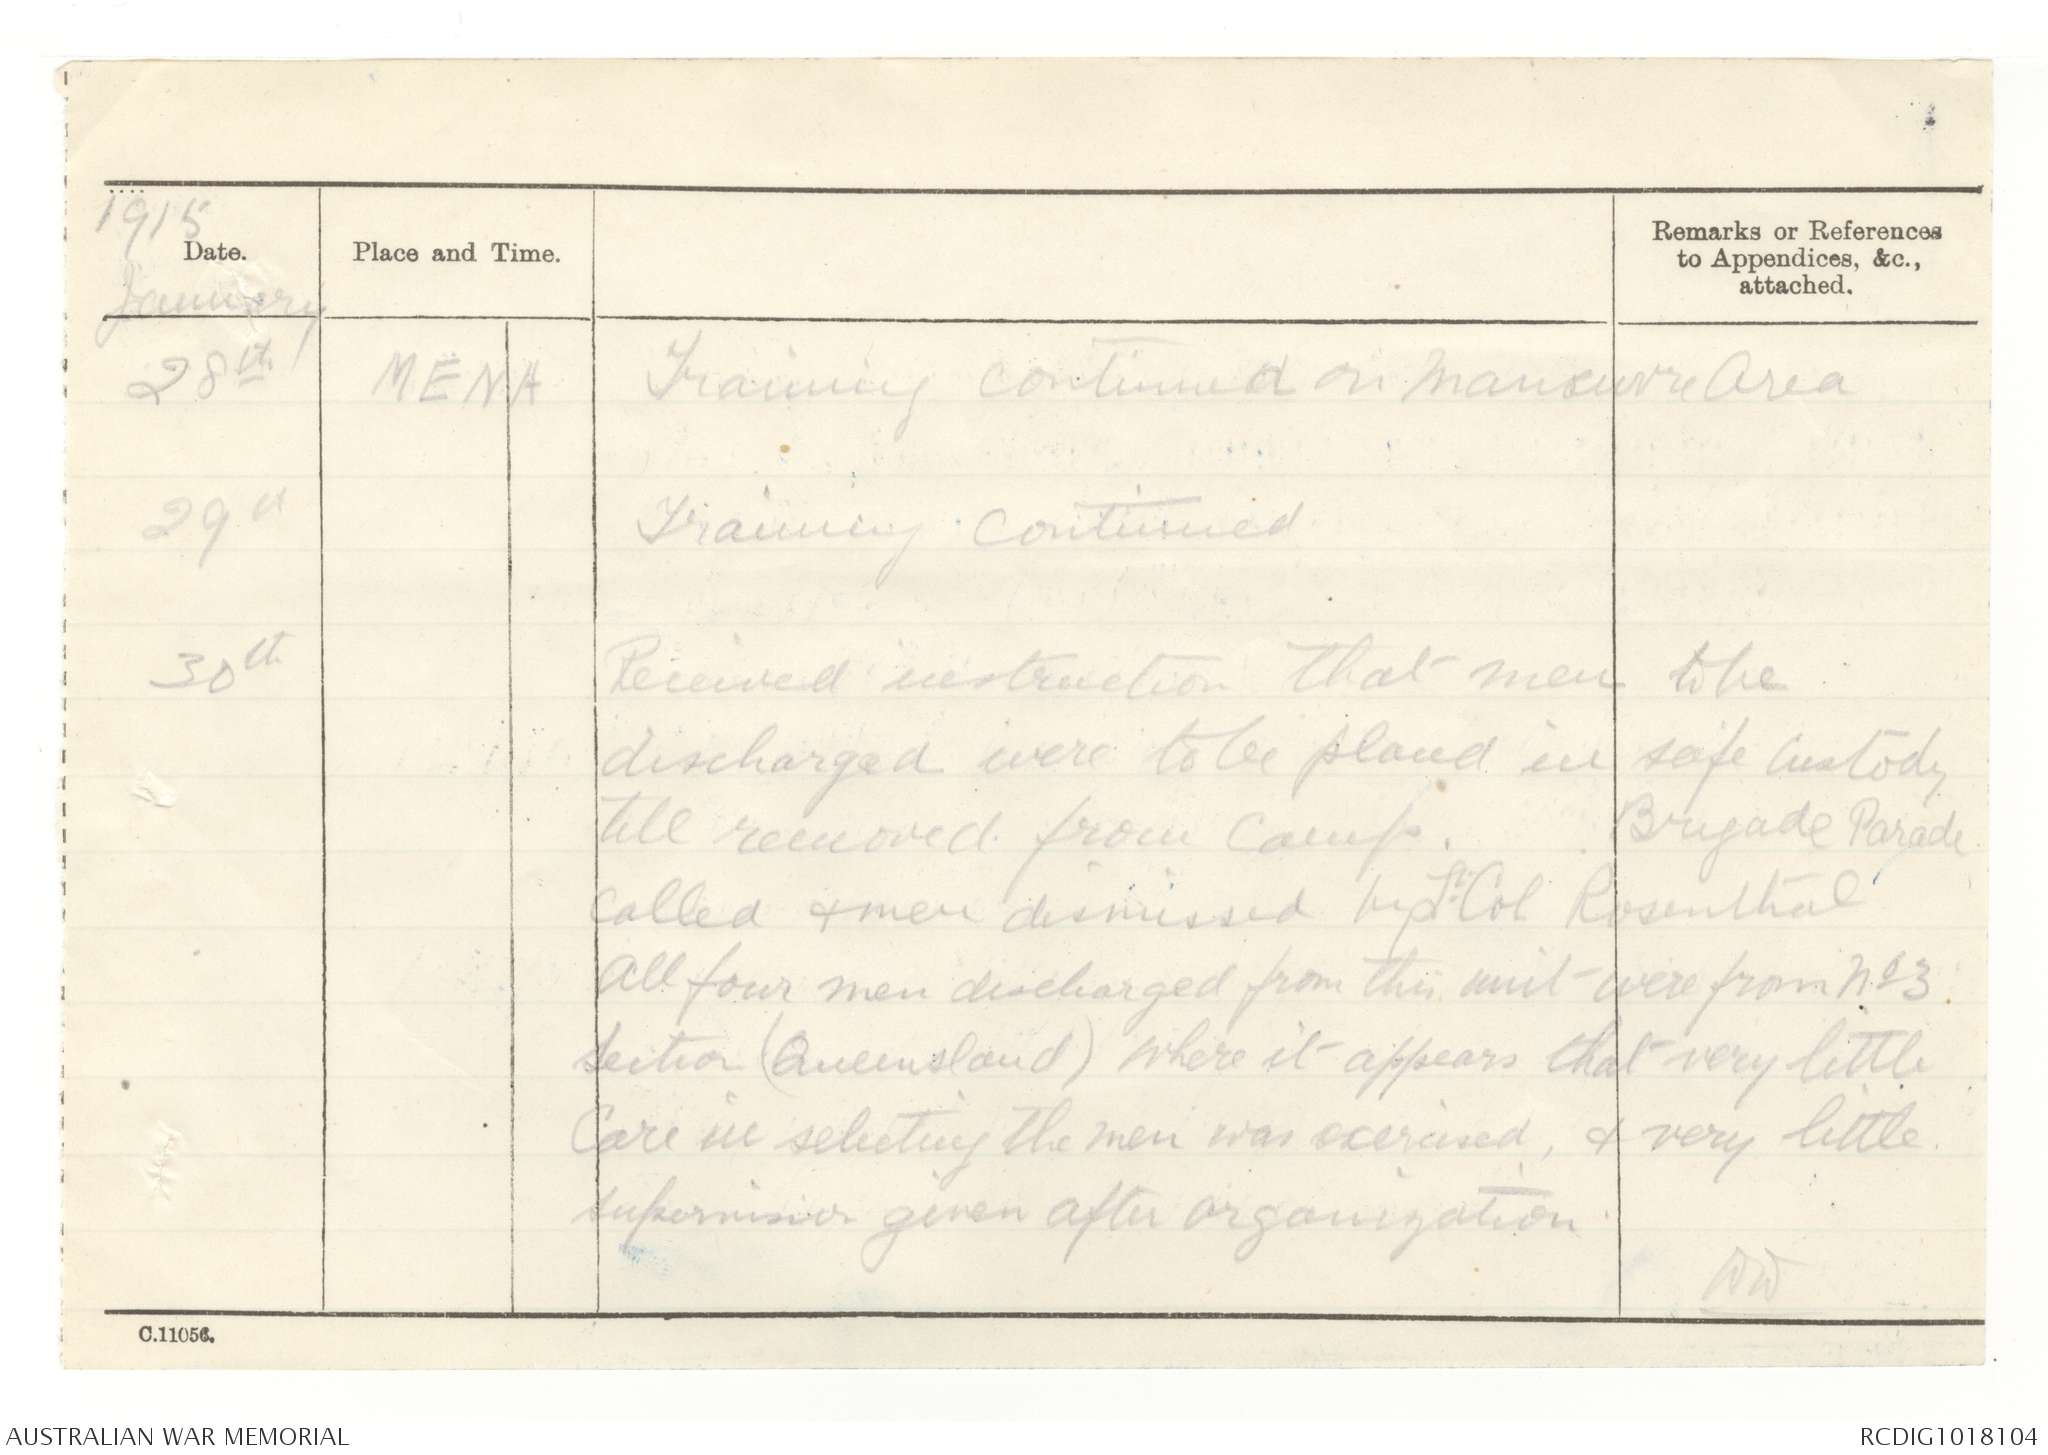 1915
Date.
Place and Time.
Remarks or References
to Appendices, &c.,
attached.
January
28th MENA Training continued on Manouvre Area
29th Training continued
30th Received instruction that men to be
discharged were to be placed in safe custody
till removed from Camp. Brigade Parade
called & men dismissed by Lt. Col Rosenthal
All four men discharged from this unit were from No 3
Section (Queensland) where it appears that very little
Care in selecting the men was exercised, & very little
supervision given after organization.
C.11056.
AUSTRALIAN WAR MEMORIAL
RCDIG1018104